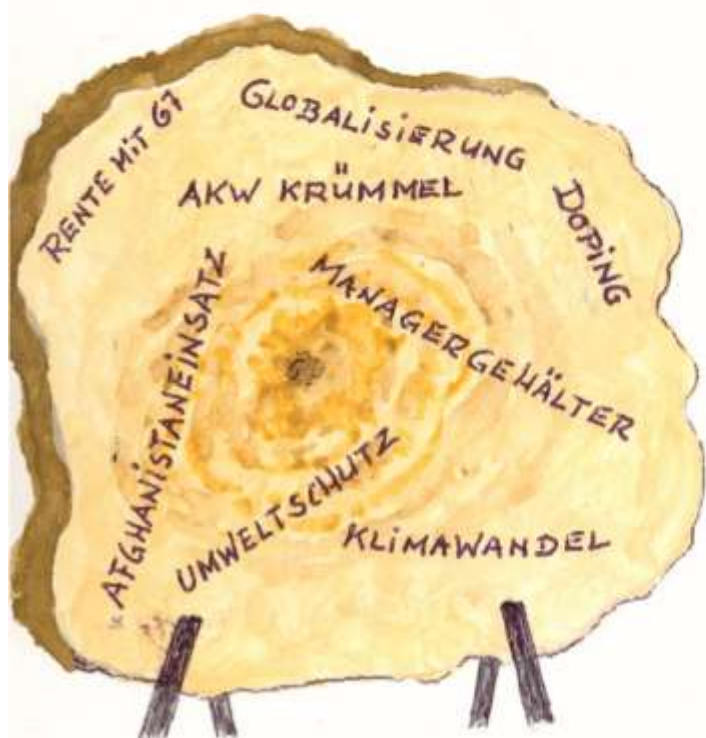 RENTE MIT 67
GLOBALISIERUNG
AKW KRÜMMEL
DOPING
MANAGERGEHÄLTER
AFGHANISTANEINSATZ
UMWELTSCHUTZ
KLIMAWANDEL